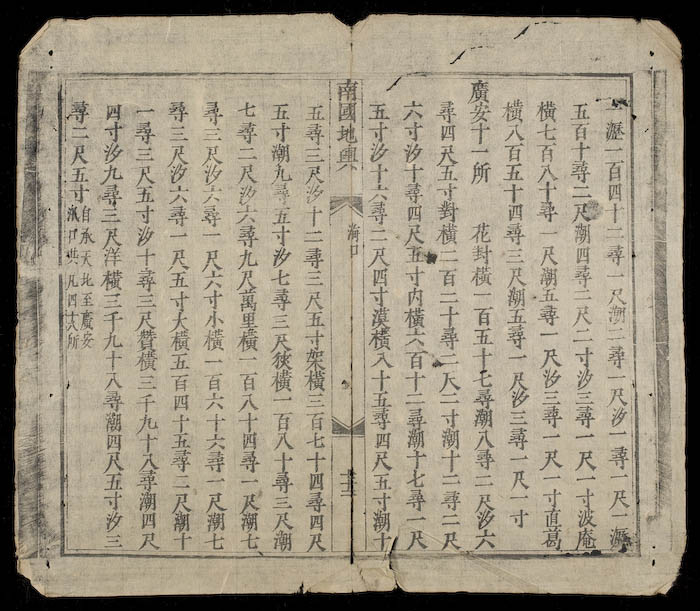 瀝一百四十二尋一尺潮二尋一尺汐一尋一尺一瀝
五百十尋二尺潮四尋二尺二寸汐三尋一尺一寸波庵
橫七百八十尋一尺潮五尋一尺汐三尋一尺一寸直葛
橫八百五十四尋三尺潮五尋一尺汐三尋一尺一寸
廣安十一所 花封橫一百五十七尋潮八尋二尺汐六
尋四尺五寸對橫二百二十尋二尺二寸潮十二尋二尺
六寸汐十尋四尺五寸内橫六百十二尋潮十七尋一尺
五寸汐十六尋二尺四寸漠橫八十五尋四尺五寸潮十
南國地輿 海口 十三
五尋三尺汐十二尋三尺五寸架橫三百七十四尋四尺
五寸潮九尋五寸汐七尋三尺狹橫一百八十尋三尺潮
七尋二尺汐六尋九尺萬里橫一百八十四尋一尺潮七
尋三尺汐六尋一尺六寸小橫一百六十六尋一尺潮七
尋三尺汐六尋一尺五寸大橫五百四十五尋二尺潮十
一尋三尺五寸汐十尋三尺贊橫三千九十八尋潮四尺
四寸汐九尋三尺洋橫三千九十八尋潮四尺五寸汐三
尋二尺五寸自承天北至廣安
海口共凡四十八所